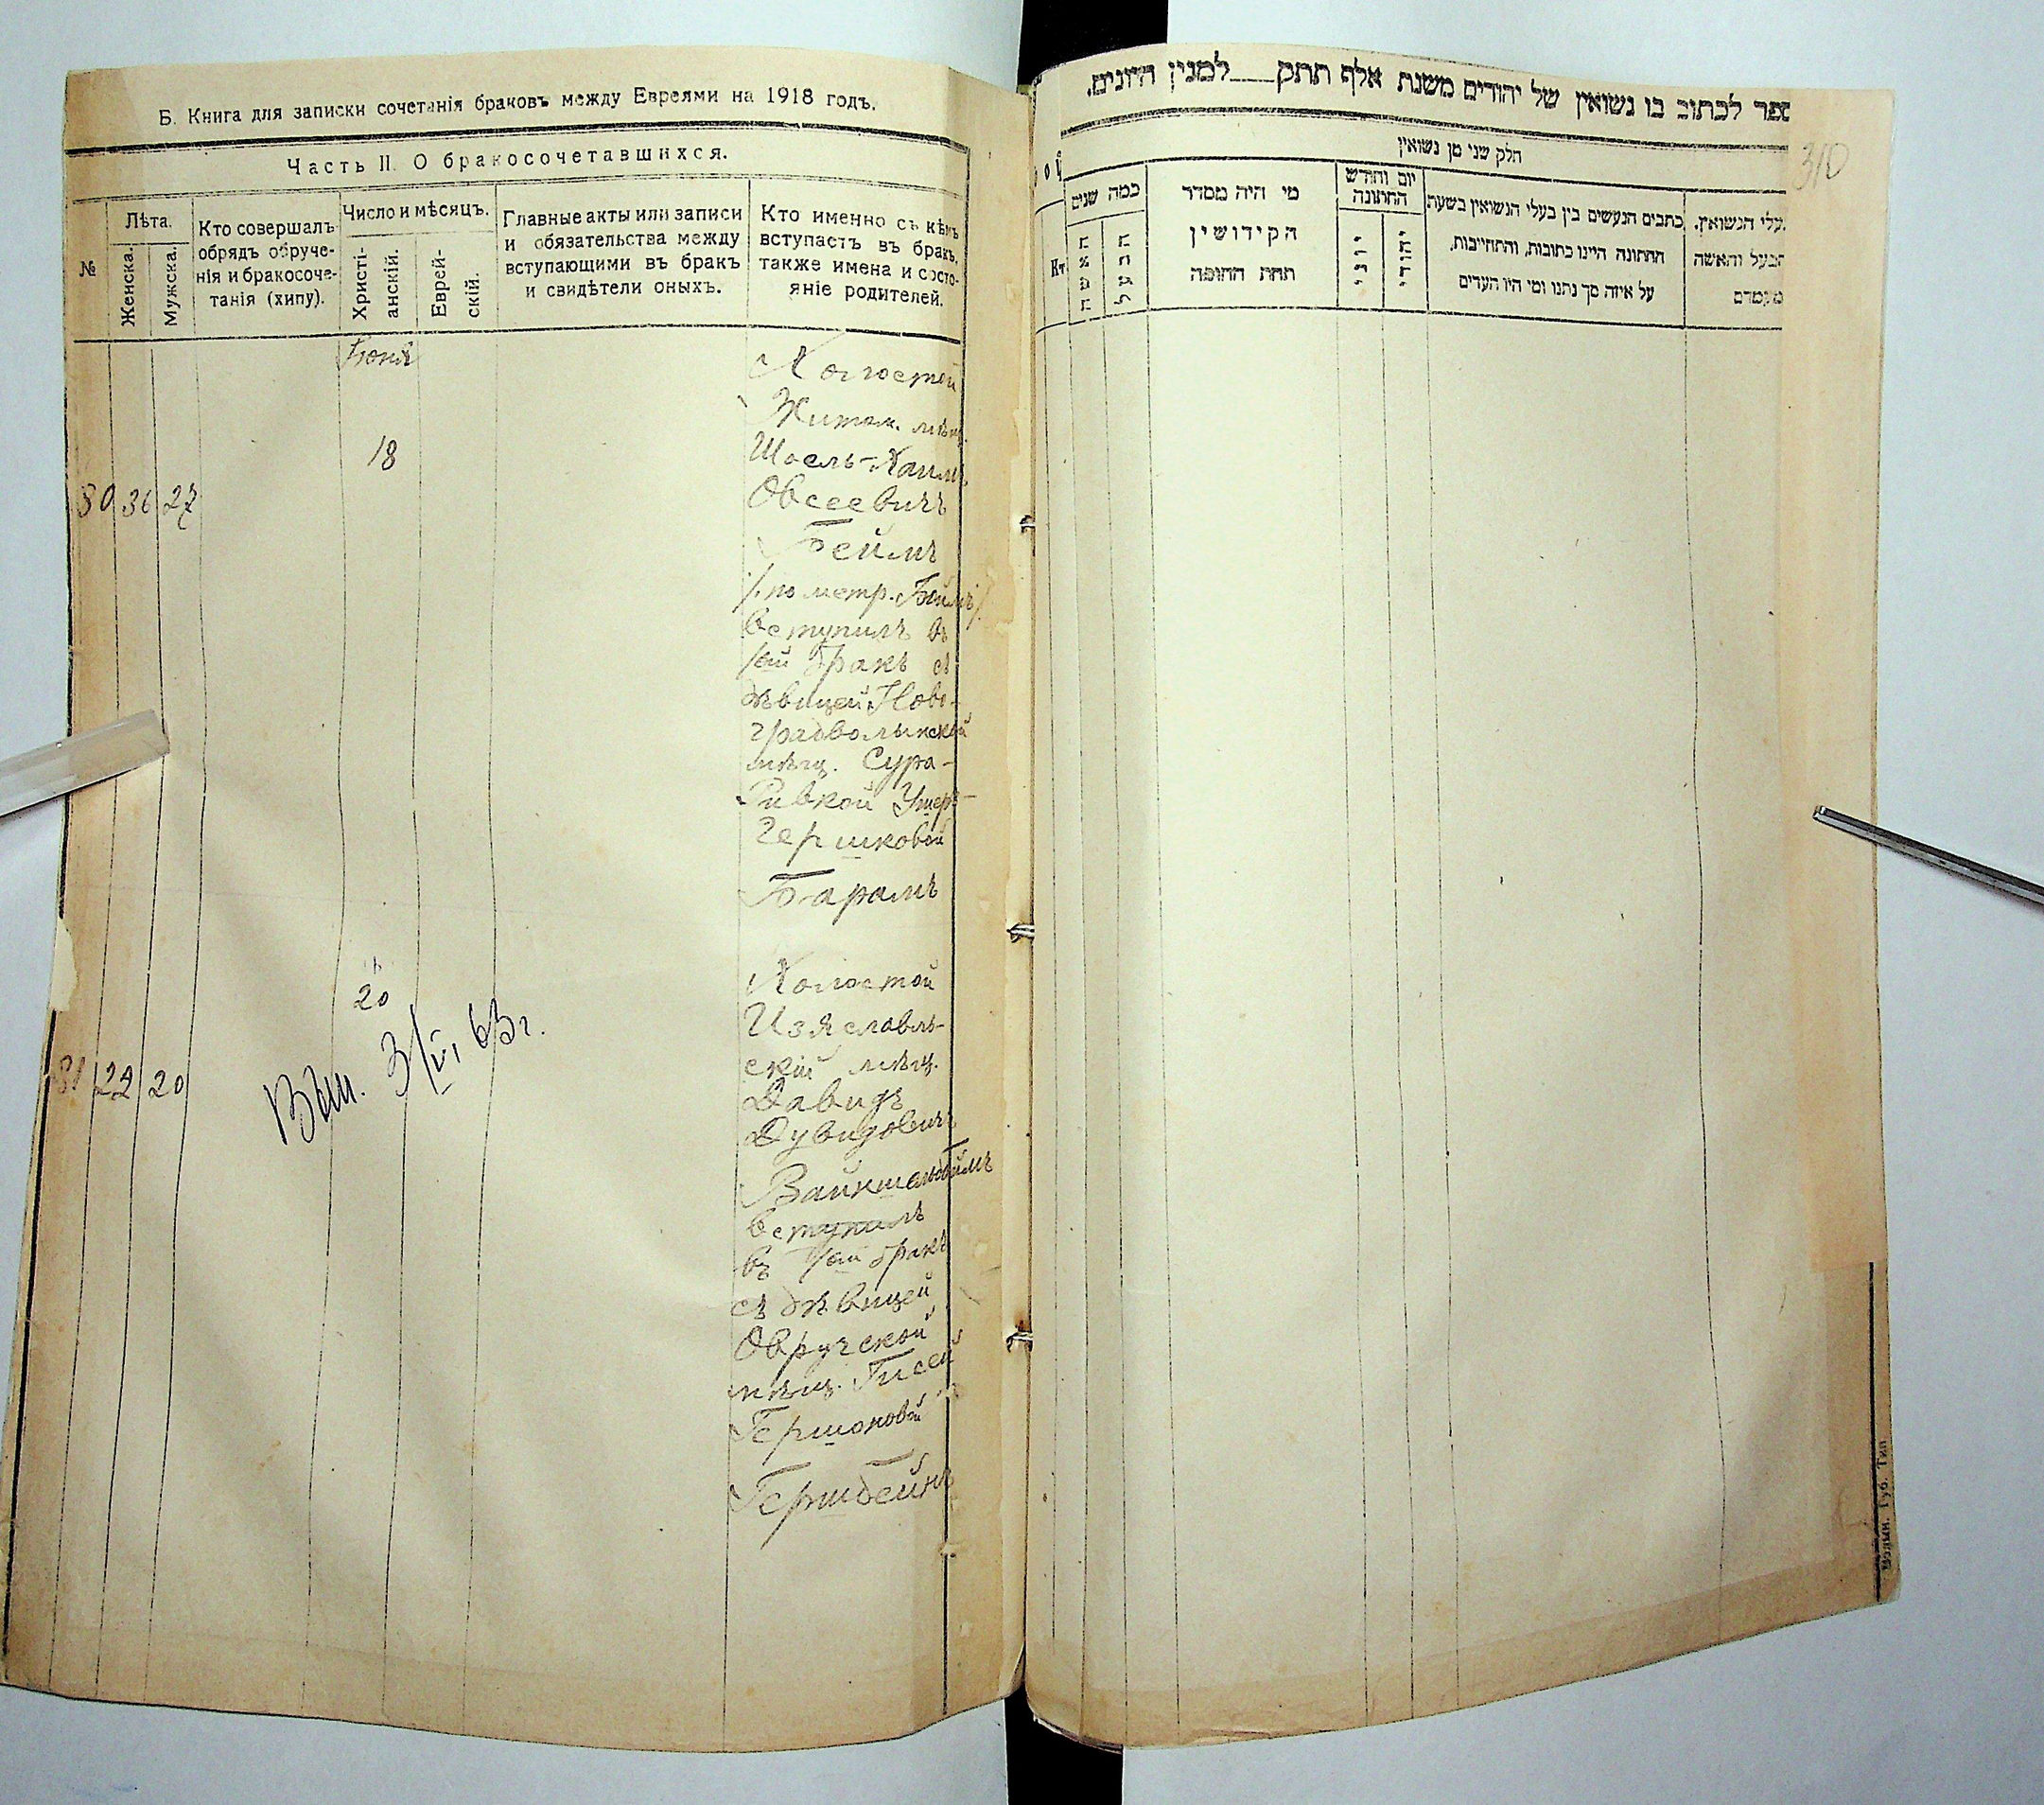 Б. Книга для записки сочетанія браковъ между Евреями на 1918 годъ.
Часть II. О бракосочетавшихся.
№
Лѣта.
Женска.
Мужска.
Кто совершалъ
обрядъ обруче-
нія и бракосоче-
танія (хипу).
Число и мѣсяцъ.
Христі-
анскій.
Еврей-
скій.
Главные акты или записи
и обязательства между
вступающими въ бракъ
и свидѣтели оныхъ.
Кто именно съ кѣмъ
вступаетъ въ бракъ,
также имена и состо-
яніе родителей.
Іюня
80 36 27
18
Холостой
Житом. мѣщ.
Шоель-Хаимъ
Овсеевичъ
Беймъ
/по метр. Баймъ/
вступилъ въ
1ый бракъ съ
дѣвицей Ново-
градволынской
мѣщ. Сура-
Ривкой Ушеръ-
Гершковой
Барамъ
81 22 20
20
Холостой
Изяславль-
скій мѣщ.
Давидъ
Дувидовичъ
Вайнштейнъ
вступилъ
въ 1ый бракъ
съ дѣвицей
Овручской
мѣщ. Гисей
Гершоновой
Герштейнъ
3/VI 63г.
ספר לכתוב בו נשואין של יהודים משנת אלף תתק___למנין היונים.
חלק שני מן נשואין
כמה שנים
האשה
הבעל
מי היה מסדר
הקידושין
תחת החופה
יום וחודש
החתונה
יוני
יהודי
כתבים הנעשים בין בעלי הנשואין בשעת
החתונה היינו כתובות, והתחייבות,
על איזה סך נתנו ומי היו העדים
בעלי הנשואין.
הבעל והאשה
מעמדם
310
Волын. Губ. Тип